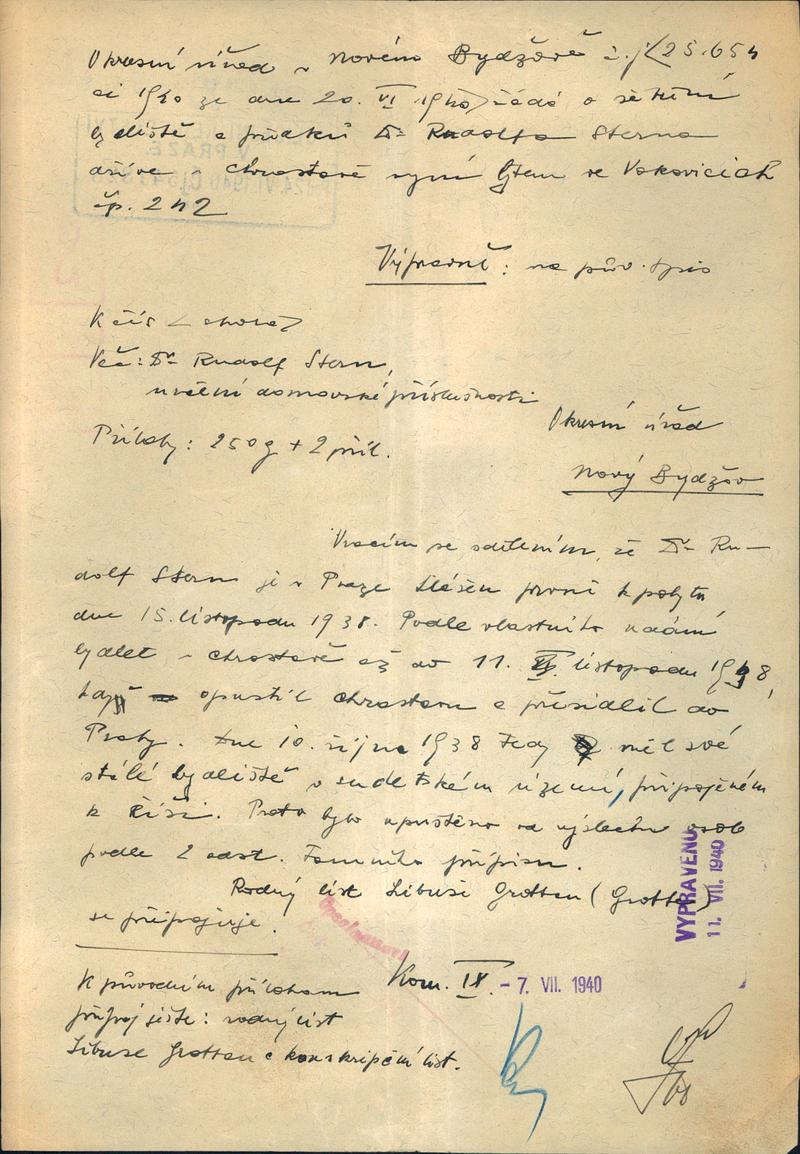 Okresní úřad v Novém Bydžově č.j. (25.654
ai 1940 ze dne 20. VI 1940) žádá o sdělení
bydliště a předků Dr Rudolfa Sterna
dříve v Chrastavě nyní bytem ve Vokovicích
čp. 242
Výpravně: na pův. spis
K čís < shora >
Věc: Dr Rudolf Stern,
určení domovské příslušnosti
Okresní úřad
Nový Bydžov
Přílohy: 250g + 2 příl.
Vracím se sdělením, že Dr Ru-
dolf Stern je v Praze hlášen prvně k pobytu
dne 15. listopadu 1938. Podle vlastního udání
bydlel v Chrastavě až do 11. listopadu 1938,
kdy opustil Chrastavu a přesídlil do
Prahy. Dne 10. října 1938 tedy měl své
stálé bydliště v sudetském území, připojeném
k Říši. Proto bylo upuštěno od výslechu osob
podle 2 odst. tamního přípisu.
Rodný list Libuše Grotten (Grotten)
se připojuje.
K původním přílohám
připoj ještě: rodný list
Libuše Grotten a konskripční list.
Kom. IX. - 7. VII. 1940
VYPRAVENO
11. VII. 1940